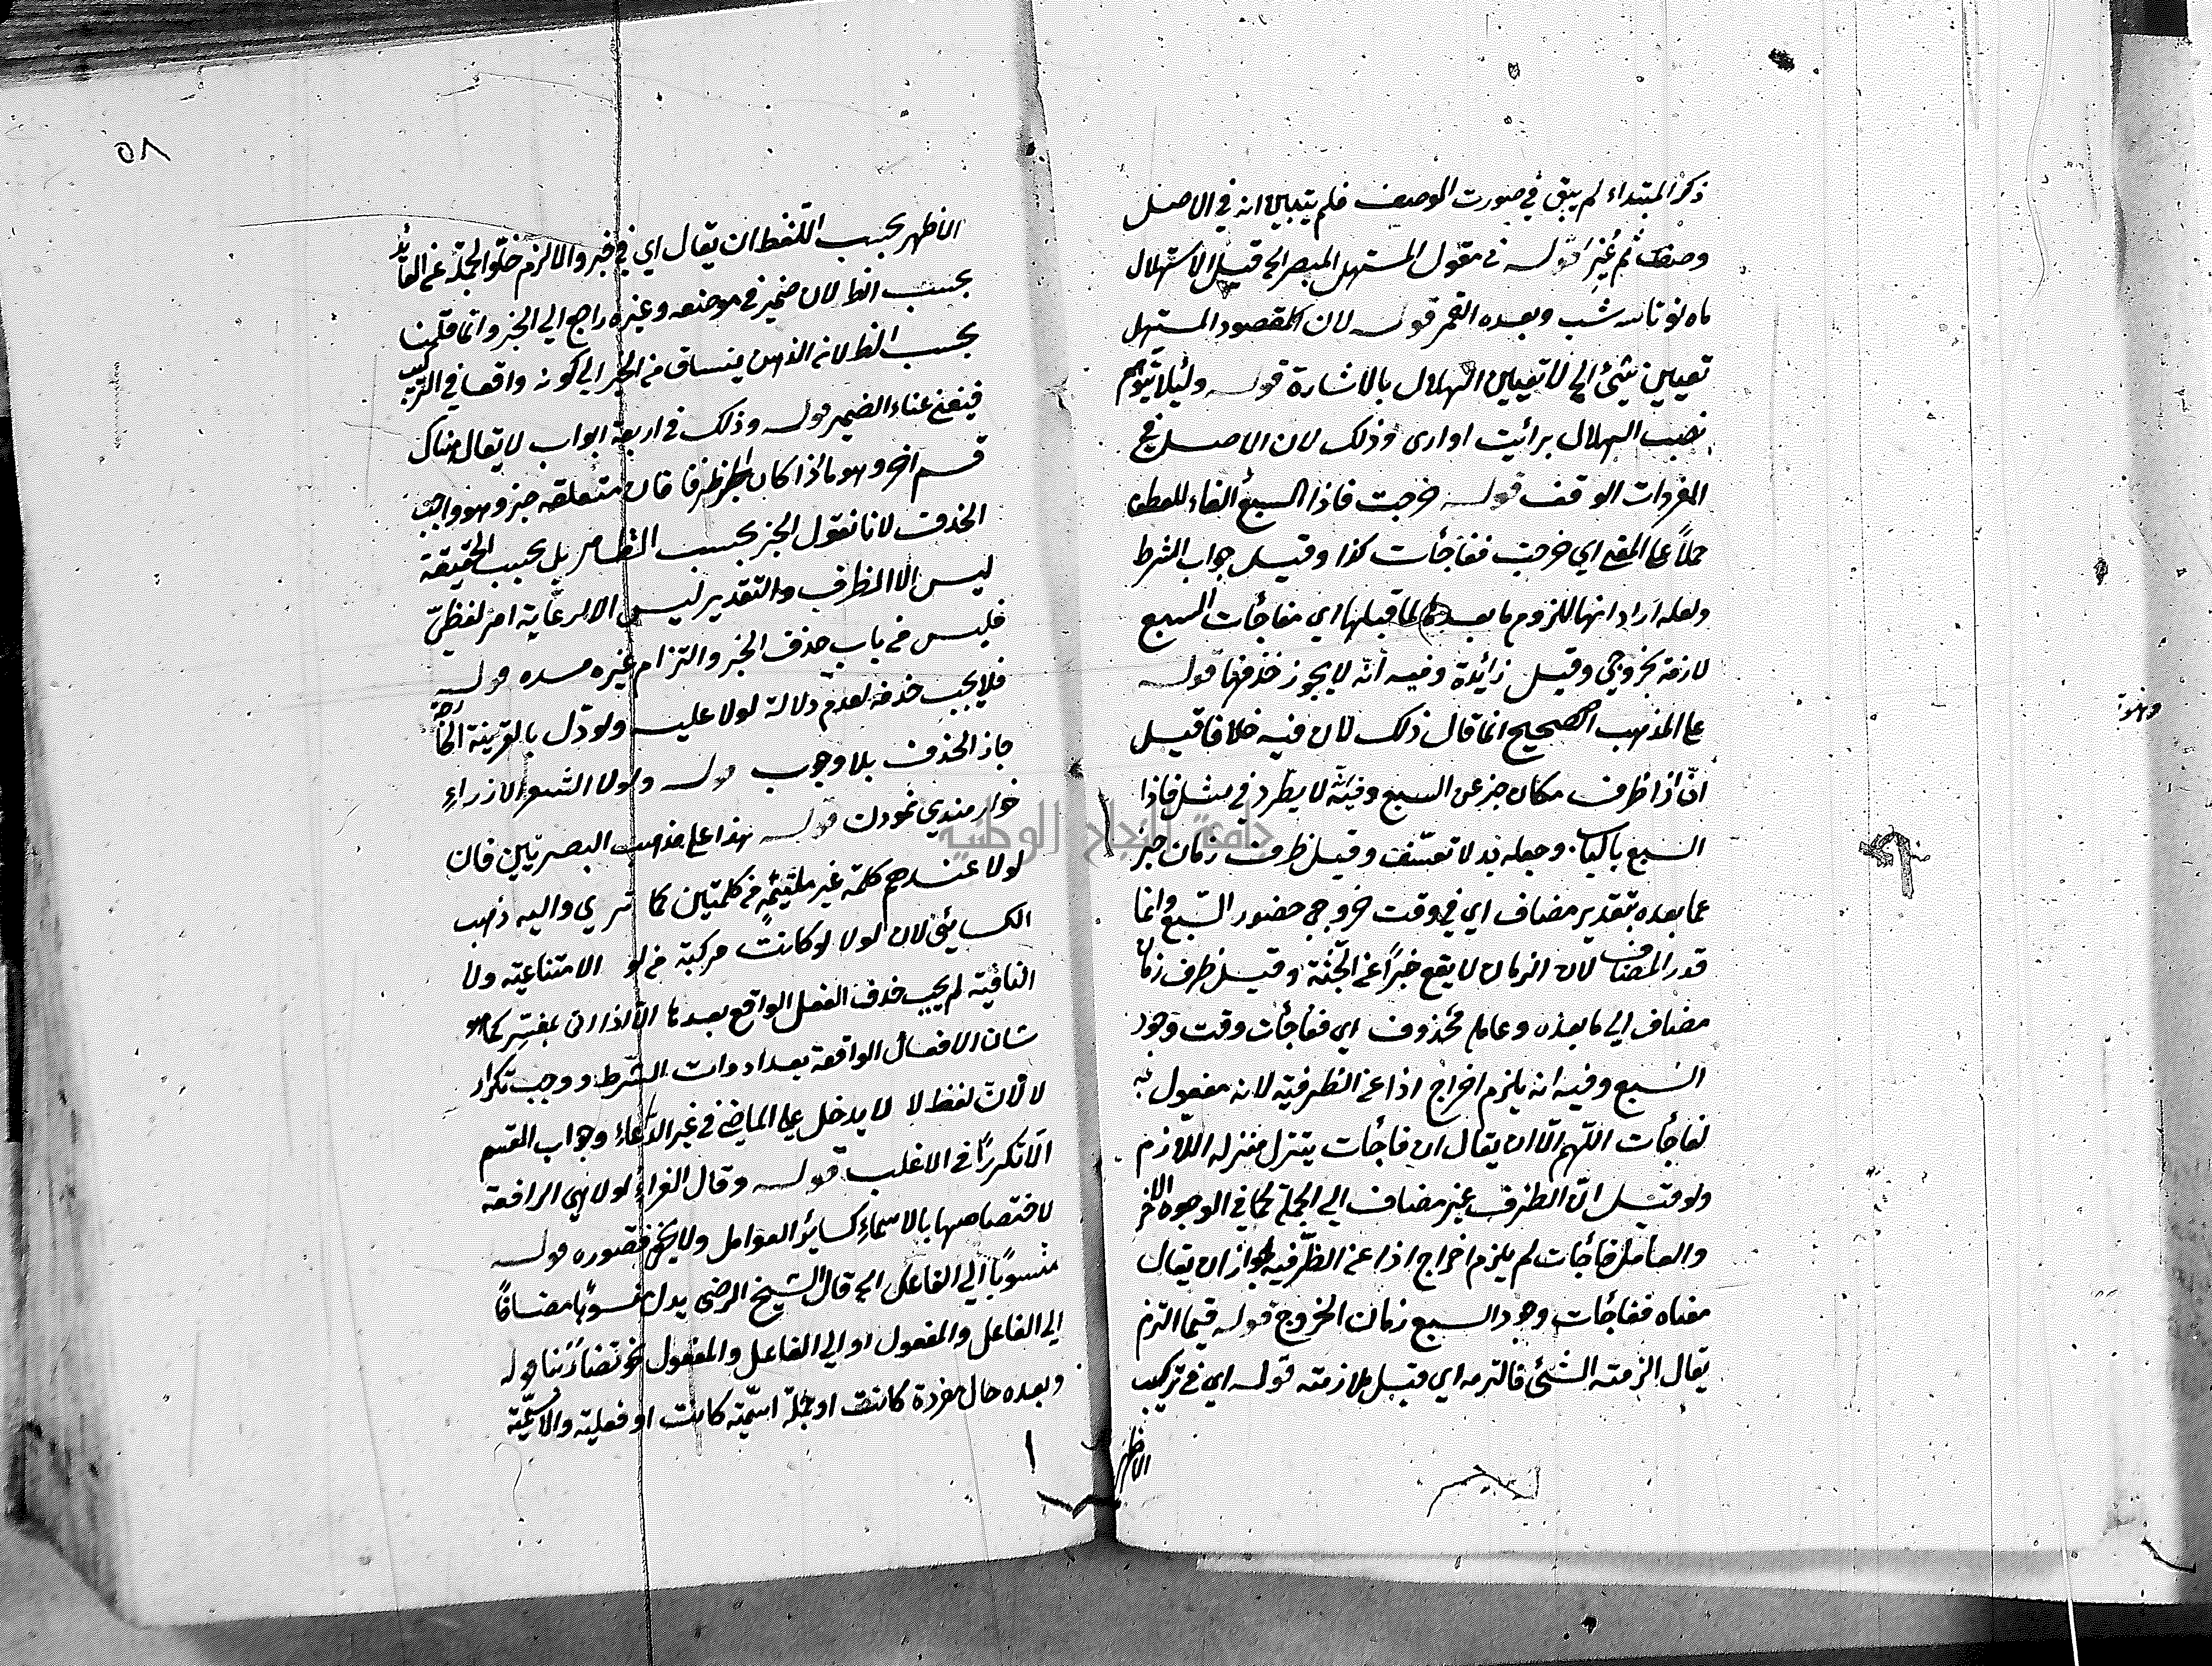 ذكر المبتداء لم يبق في صورت الوصف فلم يتبين انه في الاصل
وصف ثم غير قوله في مقول المستهل المبصر الخ قيل الاستهلال
ماه نو شب وبعده القمر قوله لان المقصود المستهل
تعيين شئ الخ لا تعيين الهلال بالاشارة قوله ولئلا يتوهم
نصب الهلال برائيت او ارى وذلك لان الاصل في
المفردات الوقف قوله خرجت فاذا السبع الفاء للعطف
حملاً على المعنى اي خرجت ففاجأت كذا وقيل جواب الشرط
ولعله اراد انها للزوم ما بعدها لما قبلها اي مفاجأت السبع
لازمة لخروجي وقيل زائدة وفيه انه لا يجوز حذفها قوله
على المذهب الصحيح انما قال ذلك لان فيه خلافا قيل
ان اذا ظرف مكان خبر عن السبع وفيه انه لا يطرد في مثل فاذا
السبع بالباب وجعله بدلا تعسف وقيل ظرف زمان خبر
عما بعده بتقدير مضاف اي في وقت خروجي حضور السبع وانما
قدر المضاف لان الزمان لا يقع خبراً عن الجثة وقيل ظرف زمان
مضاف الى ما بعده وعامله محذوف اي ففاجأت وقت وجود
السبع وفيه انه يلزم اخراج اذا عن الظرفية لانه مفعول به
لفاجأت اللهم الا ان يقال ان فاجأت ينزل منزلة اللازم
ولو قيل ان الظرف غير مضاف الى الجملة كما في الوجوه الاخر
والعامل فاجأت لم يلزم اخراج اذا عن الظرفية لجواز ان يقال
معناه ففاجأت وجود السبع زمان الخروج قوله فيما التزم
يقال الزمته الشئ فالتزمه اي قبل ملازمته قوله اي في تركيب
الاظهر
٥٨
الاظهر بحسب اللفظ ان يقال اي في خبر والا لزم خلو الجملة عن العائد
بحسب الظ لان ضمير في موضعه وغيره راجع الى الخبر وانما قلنا
بحسب الظ لانه الذهن ينساق من الخبر الى كونه واقعا في التركيب
فيغني غناء الضمير قوله وذلك في اربعة ابواب لا يقال هناك
قسم اخر وهو ما اذا كان الخبر ظرفا فان متعلقه خبر وهو واجب
الحذف لانا نقول الخبر بحسب الظاهر بل بحسب الحقيقة
ليس الا الظرف والتقدير ليس الا لرعاية امر لفظي
فليس من باب حذف الخبر والتزام غيره مسده قوله
فلا يجب حذفه لعدم دلالة لولا عليه ولو دل بالقرينة الخارجة
جاز الحذف بلا وجوب قوله ولولا الشعر الازراء
خوارمندي نمودن قوله هذا على مذهب البصريين فان
لولا عندهم كلمة غير ملتئمة من كلمتين كما ترى واليه ذهب
الكسائي لان لولا لو كانت مركبة من لو الامتناعية ولا
النافية لم يجب حذف الفعل الواقع بعدها الا اذا اتى بمفسر كما هو
شان الافعال الواقعة بعد ادوات الشرط ووجب تكرار
لا لان لفظ لا لا يدخل على الماضي في غير الدعاء وجواب القسم
الا تكرراً في الاغلب قوله وقال الفراء لولا هي الرافعة
لاختصاصها بالاسماء كسائر العوامل ولا يخفى قصوره قوله
منسوبا الى الفاعل الخ قال الشيخ الرضى بدل منسوبا مضافاً
الى الفاعل والمفعول او الى الفاعل والمفعول نحو تضاربنا قوله
وبعده حال مفردة كانت او جملة اسمية كانت او فعلية والاسمية
جامعة النجاح الوطنية